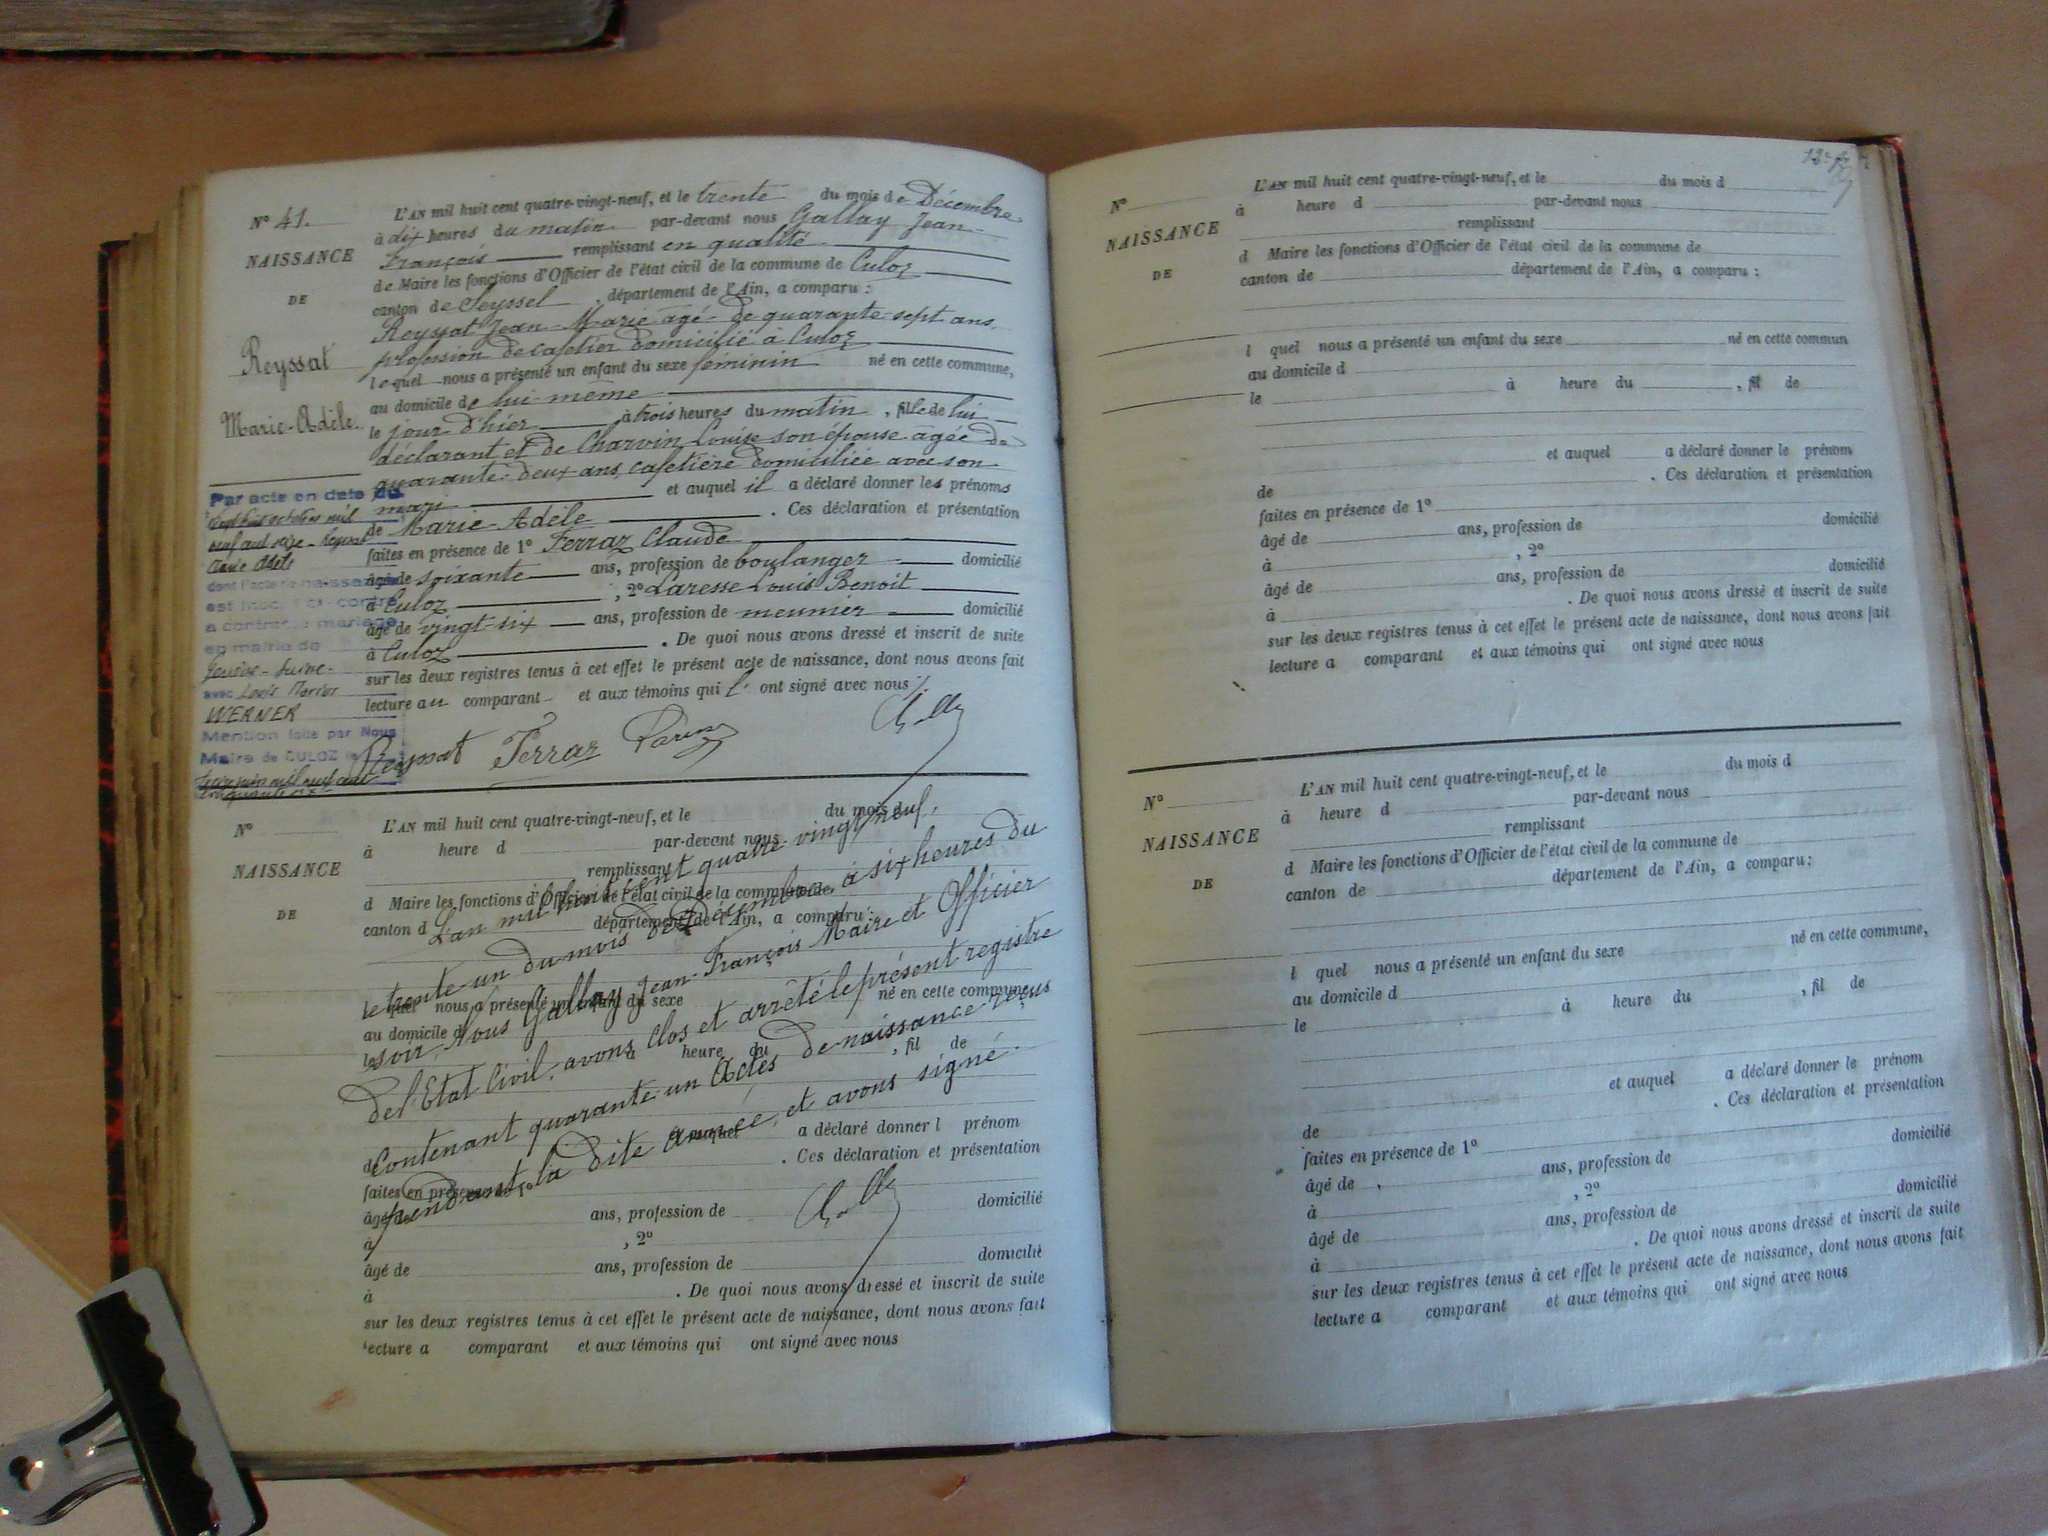 N° 41.
NAISSANCE
DE
Reyssat
Marie-Adèle.
L'AN mil huit cent quatre-vingt-neuf, et le trente du mois de Décembre
à dix heures du matin par-devant nous Gallay Jean-
François remplissant en qualité
de Maire les fonctions d'Officier de l'état civil de la commune de Culoz
canton de Seyssel, département de l'Ain, a comparu :
Reyssat Jean-Marie âgé de quarante-sept ans,
profession de cafetier domicilié à Culoz
lequel nous a présenté un enfant du sexe féminin né en cette commune,
au domicile de lui-même
le jour d'hier à trois heures du matin, fille de lui
déclarant et de Charvin Louise son épouse âgée de
quarante-deux ans, cafetière domiciliée avec son
mari et auquel il a déclaré donner les prénoms
de Marie-Adèle. Ces déclaration et présentation
faites en présence de 1° Ferraz Claude
âgé de soixante ans, profession de boulanger domicilié
à Culoz, 2° Laresse Louis Benoit
âgé de vingt-six ans, profession de meunier domicilié
à Culoz. De quoi nous avons dressé et inscrit de suite
sur les deux registres tenus à cet effet le présent acte de naissance, dont nous avons fait
lecture au comparant et aux témoins qui l' ont signé avec nous
Reyssat Ferraz
Par acte en date du
octobre mil
neuf cent seize - Reyssat
Marie Adèle
dont l'acte de naissance
est inscrit ci-contre
a contracté mariage
en mairie de
Genève - Suisse -
avec Louis Marius
WERNER
Mention faite par Nous
Maire de CULOZ le
mil neuf cent
cinquante six
N°
NAISSANCE
DE
L'AN mil huit cent quatre-vingt-neuf, et le du mois d
à heure d par-devant nous
remplissant
d Maire les fonctions d'Officier de l'état civil de la commune de
canton d département de l'Ain, a comparu :
l quel nous a présenté un enfant du sexe né en cette commune,
au domicile d
le à heure du , fil de
et auquel a déclaré donner l prénom
d . Ces déclaration et présentation
faites en présence de 1°
âgé de ans, profession de domicilié
à , 2°
âgé de ans, profession de domicilié
à . De quoi nous avons dressé et inscrit de suite
sur les deux registres tenus à cet effet le présent acte de naissance, dont nous avons fait
lecture a comparant et aux témoins qui ont signé avec nous
L'an mil huit cent quatre vingt neuf,
le trente un du mois de Décembre à six heures du
soir, Nous Gallay Jean-François Maire et Officier
de l'Etat Civil, avons Clos et arrêté le présent registre
Contenant quarante-un Actes de naissance reçus
pendant la dite année, et avons signé.
N°
NAISSANCE
DE
L'AN mil huit cent quatre-vingt-neuf, et le du mois d
à heure d par-devant nous
remplissant
d Maire les fonctions d'Officier de l'état civil de la commune de
canton de département de l'Ain, a comparu :
l quel nous a présenté un enfant du sexe né en cette commun
au domicile d
le à heure du , fil de
et auquel a déclaré donner le prénom
de . Ces déclaration et présentation
faites en présence de 1°
âgé de ans, profession de domicilié
à , 2°
âgé de ans, profession de domicilié
à . De quoi nous avons dressé et inscrit de suite
sur les deux registres tenus à cet effet le présent acte de naissance, dont nous avons fait
lecture a comparant et aux témoins qui ont signé avec nous
N°
NAISSANCE
DE
L'AN mil huit cent quatre-vingt-neuf, et le du mois d
à heure d par-devant nous
remplissant
d Maire les fonctions d'Officier de l'état civil de la commune de
canton de département de l'Ain, a comparu :
l quel nous a présenté un enfant du sexe né en cette commune,
au domicile d
le à heure du , fil de
et auquel a déclaré donner le prénom
de . Ces déclaration et présentation
faites en présence de 1°
âgé de ans, profession de domicilié
à , 2°
âgé de ans, profession de domicilié
à . De quoi nous avons dressé et inscrit de suite
sur les deux registres tenus à cet effet le présent acte de naissance, dont nous avons fait
lecture a comparant et aux témoins qui ont signé avec nous